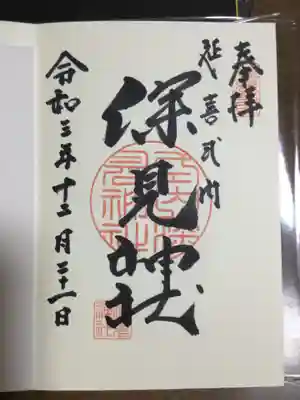 奉拝
延喜式内
深見神社
令和三年十二月二十一日